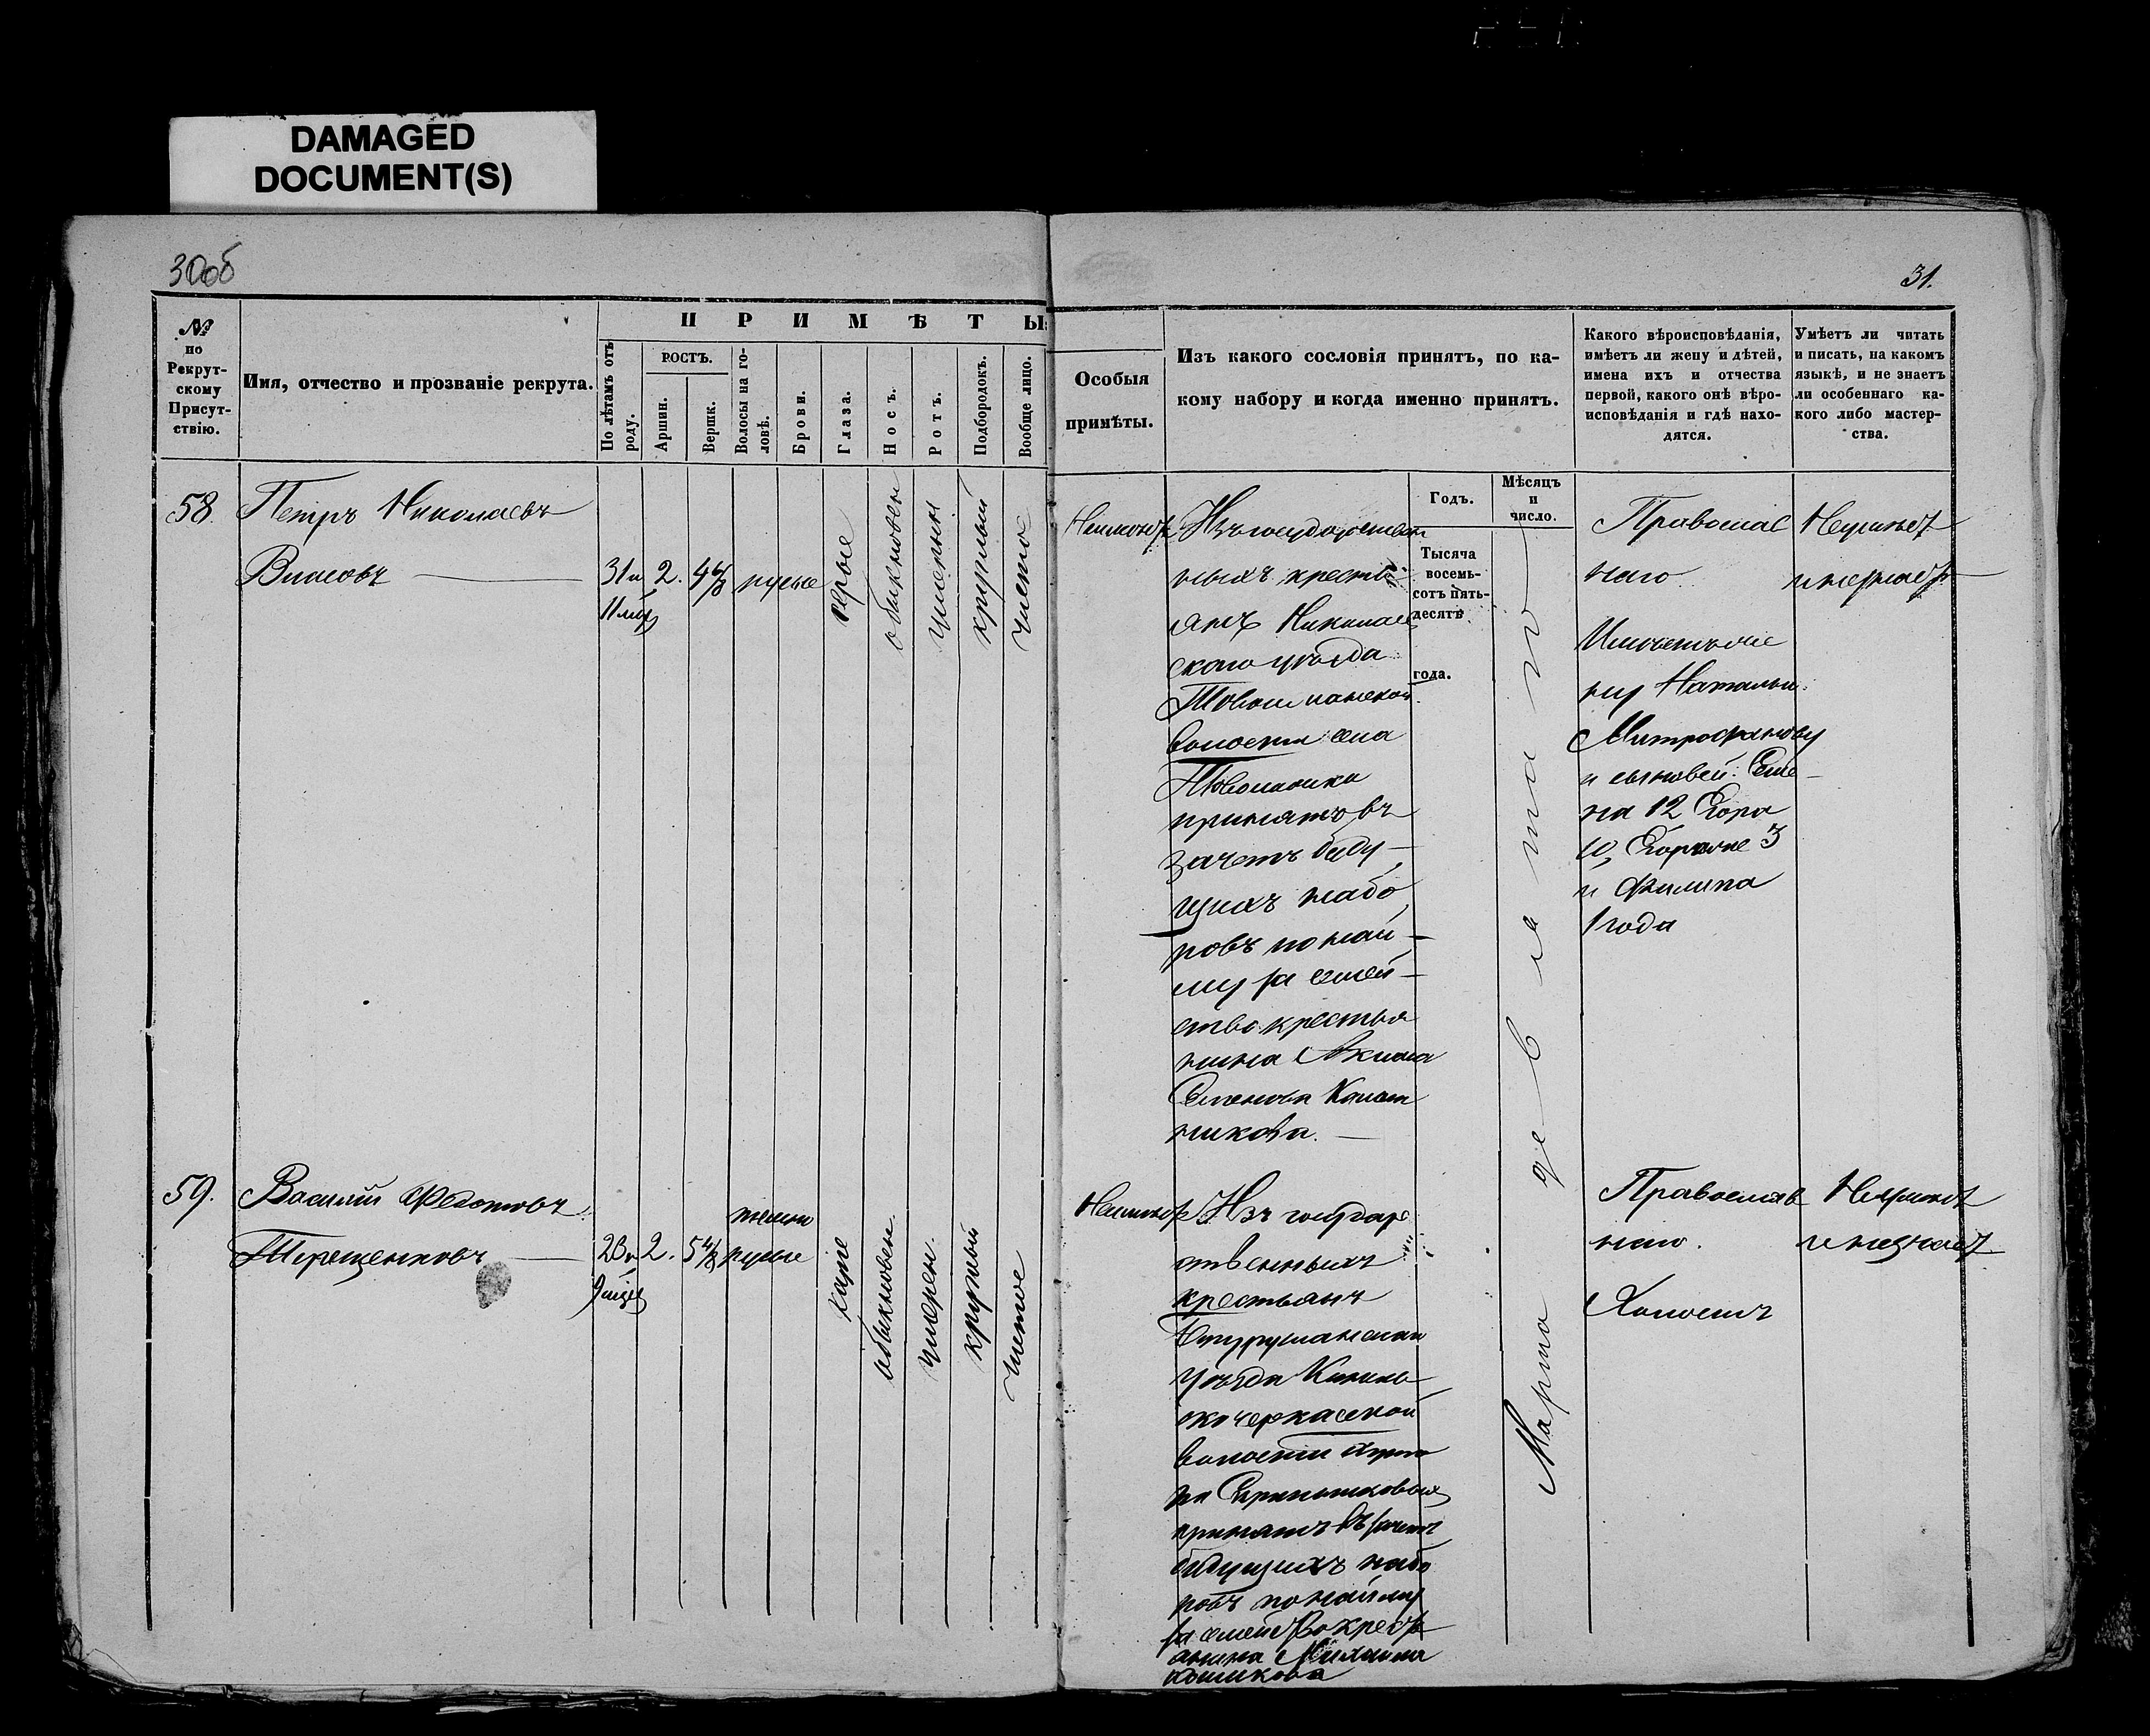 DAMAGED
DOCUMENT(S)
30об
31.
№
по
Рекрут-
скому
Присут-
ствію.
Имя, отчество и прозваніе рекрута.
ПРИМѢТЫ:
По лѣтамъ отъ
роду.
РОСТЪ.
Аршин.
Вершк.
Волосы на го-
ловѣ.
Брови.
Глаза.
Носъ.
Ротъ.
Подбородокъ.
Вообще лицо.
Особыя
примѣты.
Изъ какого сословія принятъ, по ка-
кому набору и когда именно принятъ.
Какого вѣроисповѣданія,
имѣетъ ли жену и дѣтей,
имена ихъ и отчества
первой, какого онѣ вѣро-
исповѣданія и гдѣ нахо-
дятся.
Умѣетъ ли читать
и писать, на какомъ
языкѣ, и не знаетъ
ли особеннаго ка-
кого либо мастер-
ства.
Годъ.
Мѣсяцъ
и
число.
Тысяча
восемь-
сотъ пять-
десятъ
года.
58.
Петръ Николаевъ
Власовъ
31 и
11 мѣц
2.
4 6/8
русые
серые
обыкновен
умерен
круглый
чистое
Неимѣетъ
Изъ государствен
ныхъ кресть
янъ Николаев
скаго уѣзда
волости села
принятъ въ
зачетъ буду-
щихъ набо
ровъ по най-
му за семей-
ство крестья
нина Акима
Семенова
никова.
Марта девятаго
Православ
наго
Имѣетъ же
ну Наталью
Митрофанову
и сыновей: Семе
на 12 Егора
10, 3
и Филипа
1 года
Неумѣетъ
и незнаетъ
59.
Василій Федотовъ
Терещенковъ
23 и
9 мѣц
2.
5 4/8
темно
русые
карие
обыкновен.
умерен.
круглый
чистое
Неимѣетъ
Изъ государ
ственныхъ
крестьянъ
уѣзда
волости
принятъ въ зачетъ
будущихъ набо
ровъ по найму
за семейство кресть
янина Михаила
Православ
наго.
Холостъ
Неумѣетъ
и незнаетъ